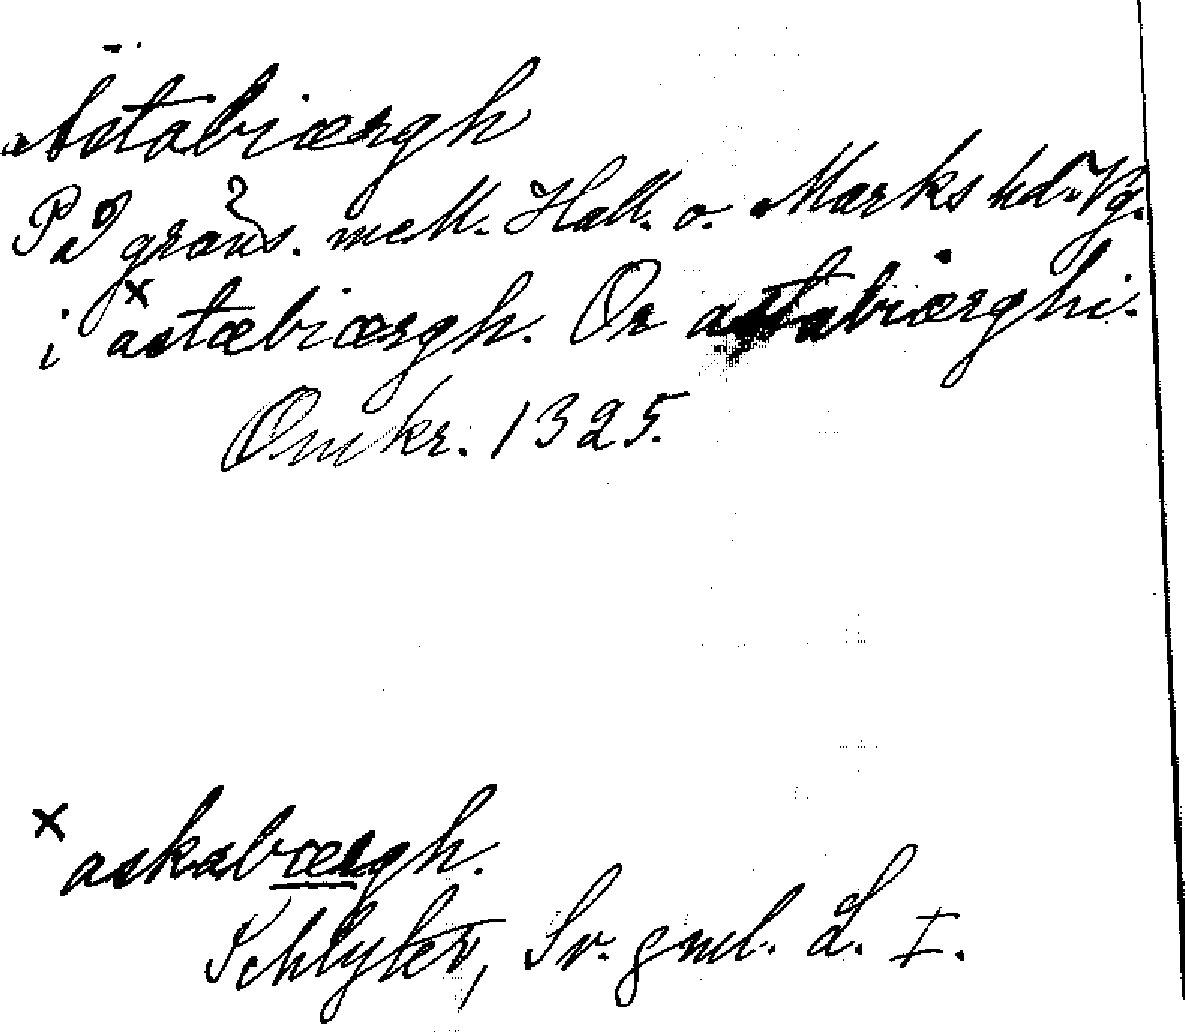 Astabiærgh
På gräns. mell. Hall. o. Marks hd. Vg.
i ˣastæbiærgh. Or astabiærghi.
Omkr. 1325.
ˣ askabærgh.
Schlyter, Sv. gml. L. I.